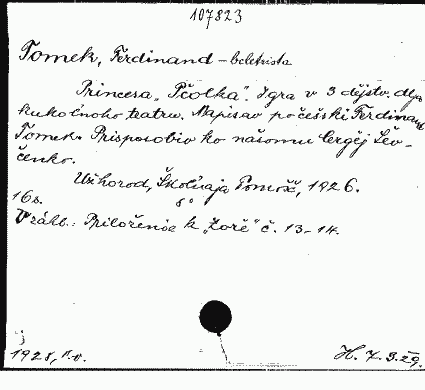 107823
Tomek, Ferdinand - beletrista
Princesa „Pčolka". Igra v 3 dějstv. dlja
kukočnoho teatru. Napisav počešski Ferdinand
Tomek. Prisposobiv ko našomu Sergěj Šev-
čenko.
Užhorod, Školnaja Pomošč, 1926.
16 s. 8°
V záhl.: Priloženie k „Zorě" č. 13-14.
1928, v.
H. 7.3.29.